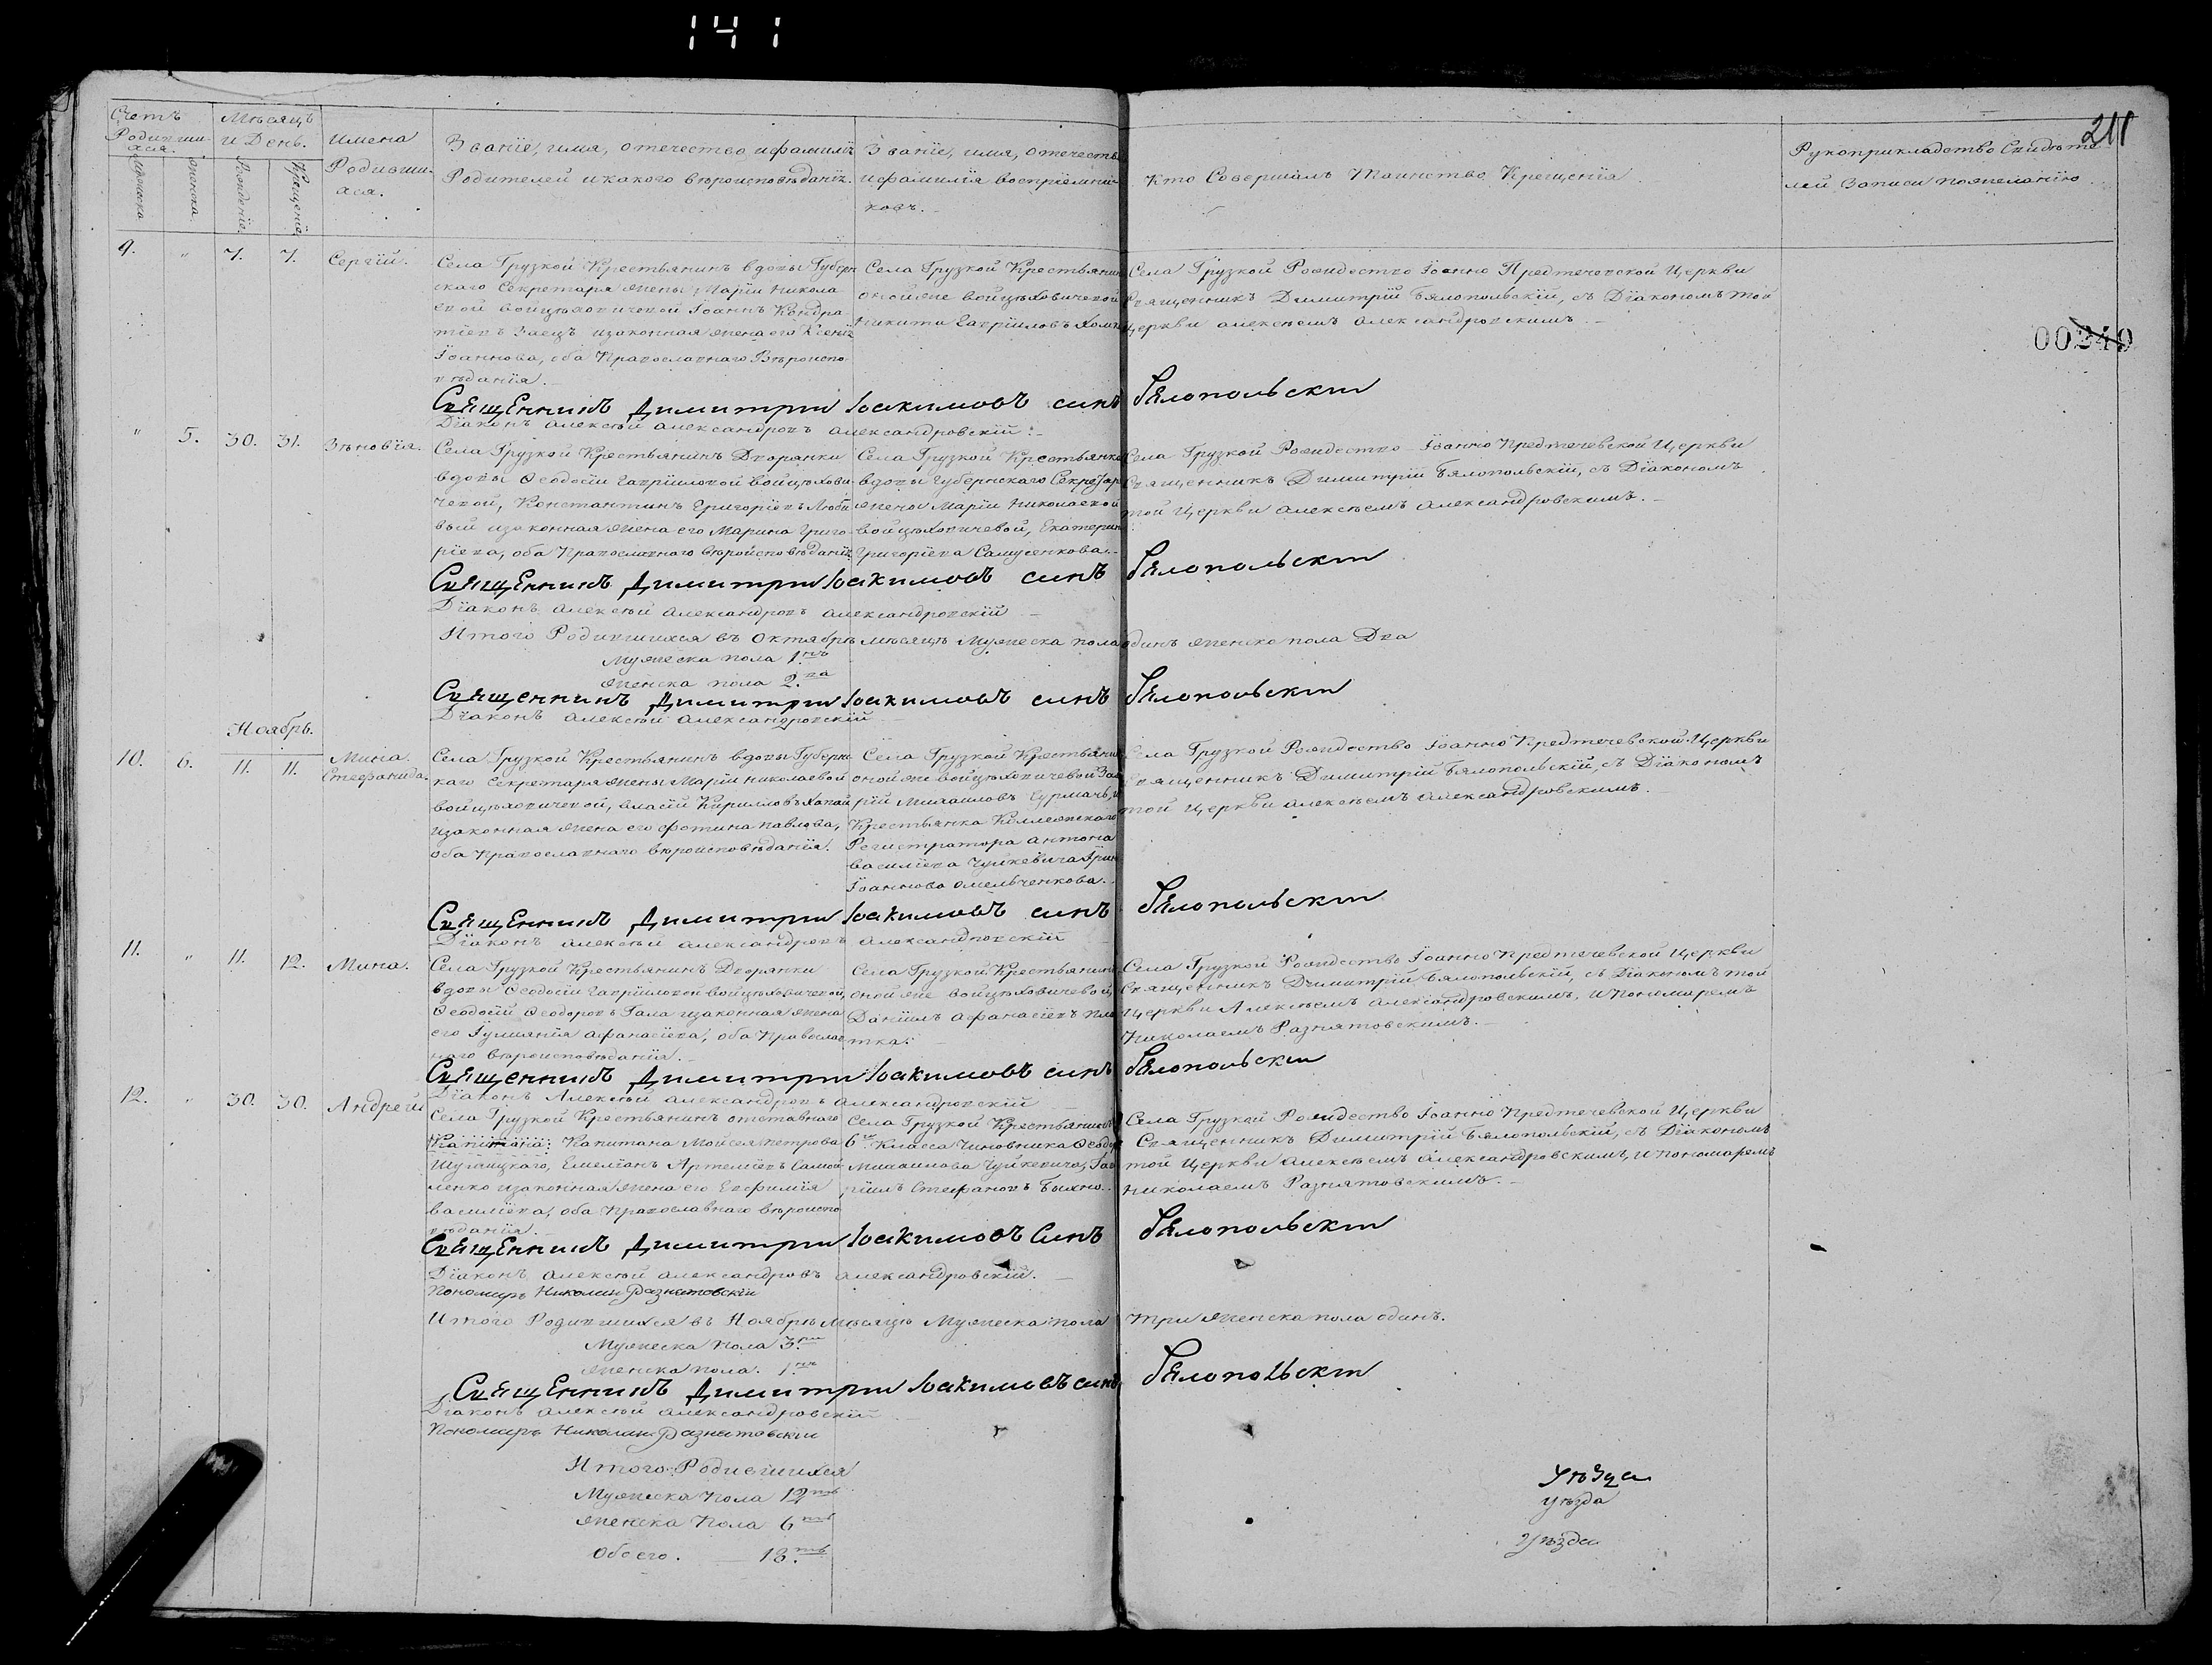 141
211
00240
Счетъ
Родивши-
хся.
Мужеска
Женска
Мѣсяцъ
и День.
Рожденїе
Крещенїе
Имена
Родивши-
хся.
Званїе, имя, отечество и фамилїя
Родителей и какого вѣроисповѣданїя.
Званїе, имя, отечество
и фамилїя воспрїемни-
ковъ.
Кто Совершалъ Таинство Крещенїя
Рукоприкладство Свидѣте-
лей Записи по желанїю
9. " 7. 7. Сергїй.
Села Грузкой Крестьянинъ вдовы Губерн
скаго Секретаря жены Марїи Никола
евой Войцѣховичевой Іоаннъ Кондра
тїевъ Заецъ и законная жена его Ксенїя
Іоаннова, оба Православнаго Вѣроиспо-
вѣданїя.
Села Грузкой Крестьянин
оной же Войцѣховичевой
Никита Гаврїиловъ
Села Грузкой Рождество Іоанно Предтечевской Церкви
Священникъ Димитрїй Бялопольскїй, съ Дїакономъ той
Церкви Алексѣемъ Александровскимъ.
Священникъ Димитрии Іоакимовъ синъ Бялопольскии
Дїаконъ Алексѣй Александровъ Александровскїй.
" 5. 30. 31. Зѣновїя.
Села Грузкой Крестьянинъ Дворянки
вдовы Ѳеодосїи Гаврїиловой Войцѣхови-
чевой, Константинъ Григорїевъ Люби
вый и законная жена его Марина Григо-
рїева, оба Православнаго вѣроисповѣданїя.
Села Грузкой Крестьянка
вдовы Губернскаго Секретар
жены Марїи Николаевой
Войцѣховичевой, Екатерин
Григорїева Самусенкова.
Села Грузкой Рождество Іоанно Предтечевской Церкви
Священникъ Димитрїй Бялопольскїй, съ Дїакономъ
той Церкви Алексѣемъ Александровскимъ.
Священникъ Димитрии Іоакимовъ синъ Бялопольскии
Дїаконъ Алексѣй Александровъ Александровскїй
Итого Родившихся въ Октябрѣ мѣсяцѣ Мужеска пола одинъ женско пола Два
Мужеска пола 1.нъ
женска пола 2.ва
Священникъ Димитрии Іоакимовъ синъ Бялопольскии
Дїаконъ Алексѣй Александровскїй
Ноябрь.
10. 6. 11. 11. Мина.
Стефанида.
Села Грузкой Крестьянинъ вдовы Губернс
каго Секретаря жены Марїи Николаевой
Войцѣховичевой, Власїй Кирилловъ
и законная жена его Фотина Павлова,
оба Православнаго вѣроисповѣданїя.
Села Грузкой Крестьянин
оной же Войцѣховичевой За
рїй Михаиловъ Сурмачъ, и
Крестьянка Коллежскаго
Регистратора Антона
Василїева Чуйкевича Ірин
Іоаннова Омельченкова.
Села Грузкой Рождество Іоанно Предтечевской Церкви
Священникъ Димитрїй Бялопольскїй, съ Дїакономъ
той Церкви Алексѣемъ Александровскимъ.
Священникъ Димитрии Іоакимовъ синъ Бялопольскии
Дїаконъ Алексѣй Александровъ Александровскїй
11. " 11. 12. Мина.
Села Грузкой Крестьянинъ Дворянки
вдовы Ѳеодосїи Гаврїиловой Войцѣховичевой,
Ѳеодосїй Ѳеодоровъ Гала и законная жена
его Іулианїя Афанасїева, оба Православ
наго вѣроисповѣданїя.
Села Грузкой Крестьянинъ
оной же Войцѣховичевой,
Данїилъ Афанасїевъ Пле
тка.
Села Грузкой Рождество Іоанно Предтечевской Церкви
Священникъ Димитрїй Бялопольскїй, съ Дїакономъ той
Церкви Алексѣемъ Александровскимъ, и Пономаремъ
Николаемъ Разнятовскимъ.
Священникъ Димитрии Іоакимовъ синъ Бялопольскии
Дїаконъ Алексѣй Александровъ Александровскїй
12. " 30. 30. Андрей
Села Грузкой Крестьянинъ отставнаго
Капитана: Капитана Мойсея Петрова
Шулжицкаго, Емелїанъ Артемїевъ Самой
ленко и законная жена его Евфимїя
Василїева, оба Православнаго вѣроиспо-
вѣданїя.
Села Грузкой Крестьянинъ
6го Класса Чиновника Ѳеодо
Михаилова Чуйкевича, Гав
рїилъ Стефановъ Быхно.
Села Грузкой Рождество Іоанно Предтечевской Церкви
Священникъ Димитрїй Бялопольскїй, съ Дїакономъ
той Церкви Алексѣемъ Александровскимъ, и пономаремъ
Николаемъ Разнятовскимъ.
Священникъ Димитрии Іоакимовъ Синъ Бялопольскии
Дїаконъ Алексѣй Александровъ Александровскїй.
Пономарь Николаи Разнятовскїи
Итого Родившихся въ Ноябрѣ мѣсяцѣ Мужеска пола три женска пола одинъ.
Мужеска пола 3.ри
женска пола. 1.нъ
Священникъ Димитрии Іоакимовъ синъ Бялопольскии
Дїаконъ Алексѣй Александровскїй
Пономарь Николаи Разнятовскїи
Итого: Родившихся
Мужеска пола 12ть
женска пола 6ть
Обоего. 18.ть
уѣзда
уѣзда
уѣзда